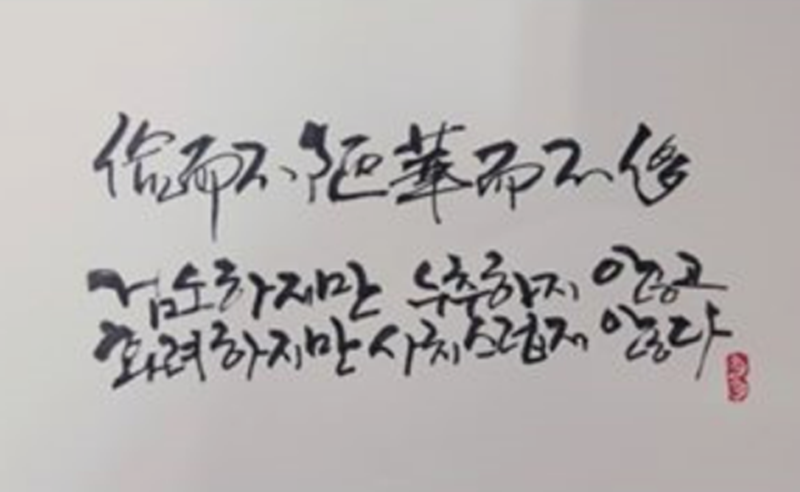 儉而不陋華而不侈
검소하지만 누추하지 않고
화려하지만 사치스럽지 않다